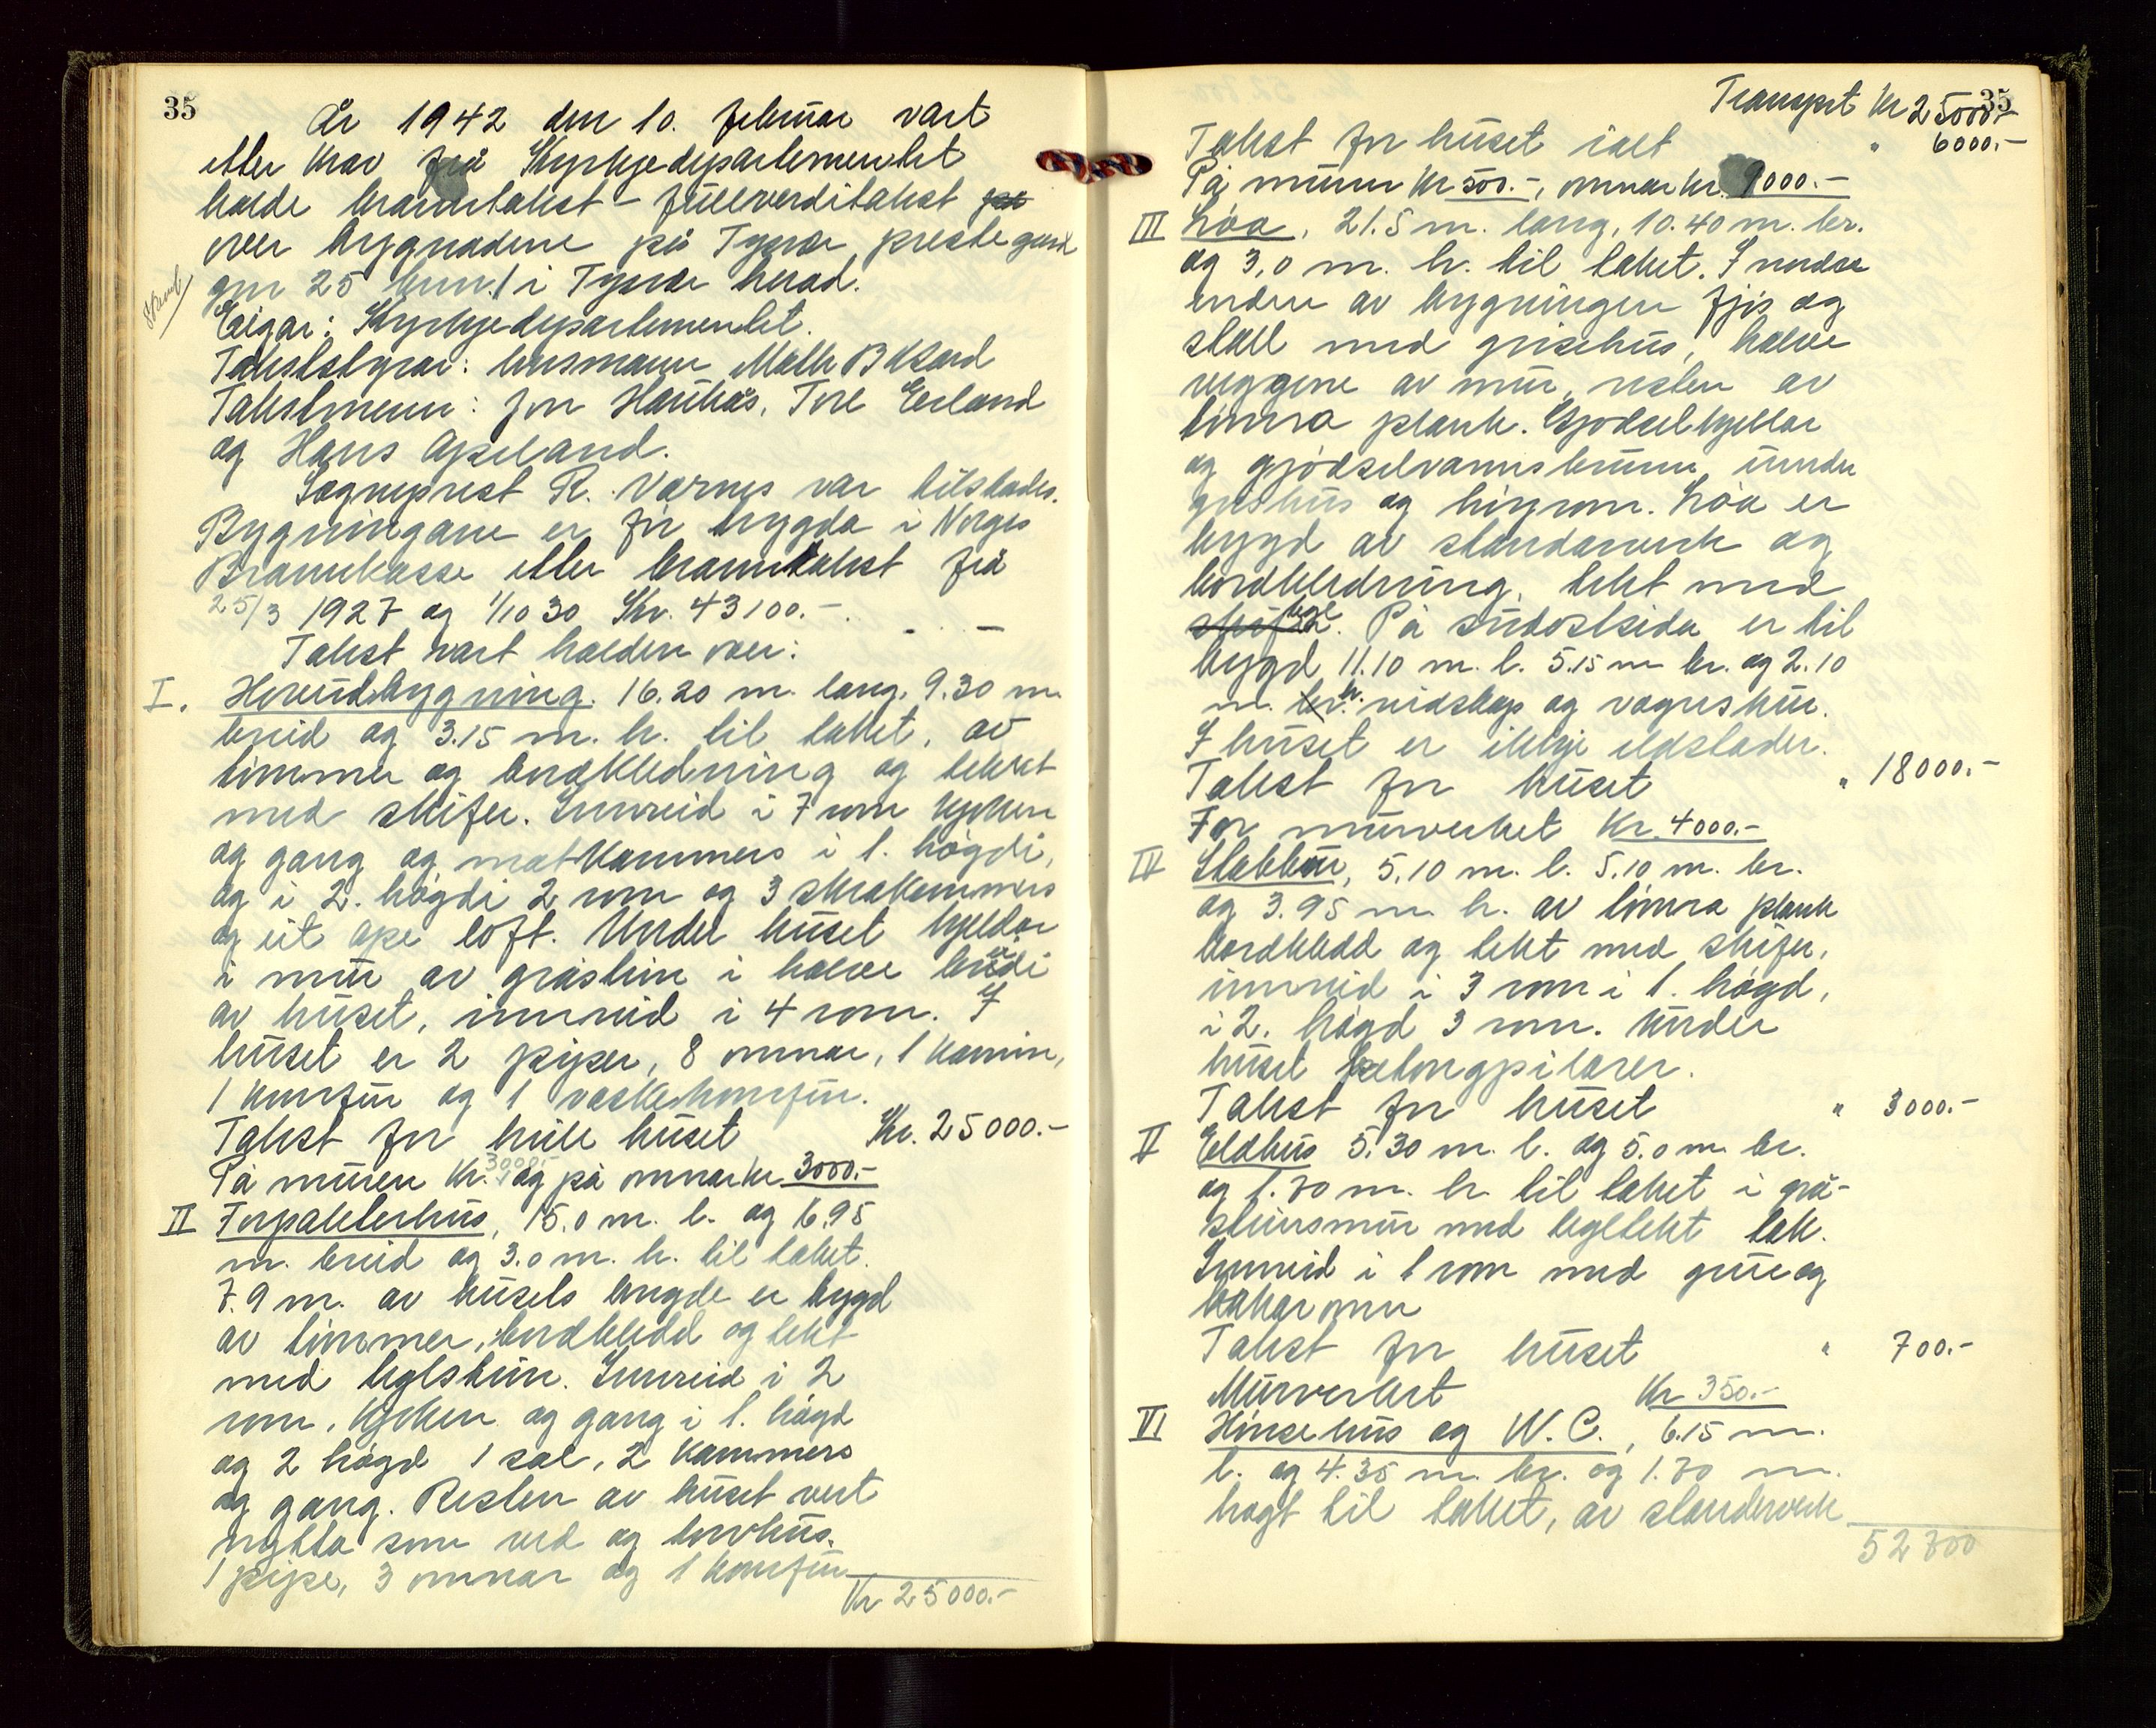 35
År 1942 den 10. februar vart
etter krav frå Kyrkjedepartementet
halde branntakst - fullverditakst
over bygnadene på Tysvær prestegard
gnr 25 brnr. 1 i Tysvær herad.
Eigar: Kyrkjedepartementet.
Takststyrar: lensmann Math B
Takstmenn: Jon Haukås, Tore Eerland
og Hans Apeland.
Sogneprest R. Værnes var tilstades.
Bygningane er før trygda i Norges
Brannkasse etter branntakst frå
25/3 1927 og 1/10 30 Kr. 43100.-
Takst vart halden over:
I. Hovudbygning. 16.20 m. lang, 9.30 m.
breid og 3.15 m. h. til taket, av
timmer og bordkledning og tekket
med skifer. Innreid i 7 rom kjøken
og gang og matkammers i 1. høgdi,
og i 2. høgdi 2 rom og 3 skråkammers
og eit ope loft. Under huset kjeldar
i mur av gråstein i halve breidi
av huset, innreid i 4 rom. I
huset er 2 piper, 8 omnar, 1 kamin,
1 komfur og 1 vaskekomfur.
Takst for heile huset Kr. 25000.-
På muren Kr. 3000.- og på omnar kr 3000.-
II Forpakterhus, 15.0 m. l. og 6.95
m. breid og 3.0 m. h. til taket.
7.9 m. av husets lengde er bygd
av timmer, bordkledd og tekt
med teglstein. Innreid i 2
rom, kjøken og gang i 1. høgd
og 2 høgd 1 sal, 2 kammers
og gang. Resten av huset vert
nytta som ved og torvhus.
1 pipe, 3 omnar og 1 komfur
Kr 25000.-
35
Transprt Kr 25000.-
Takst for huset ialt " 6000.-
På muren Kr 500.-, omnar kr. 9000.-
III Løa, 21.5 m. lang, 10.40 m. br.
og 3,0 m. h. til taket. I nordre
enden av bygningen fjøs og
stall med grisehus, halve
veggene av mur, resten av
timra plank. Gjødselkjellar
og gjødselvannsbrunn under
grishus og høyrom. Løa er
bygd av standarverk og
bordkledning, tekt med
skifer tegl. På sudostsida er til
bygd 11.10 m. l. 5.15 m br. og 2.10
m. br. h. reidskap og vognskur.
I huset er ikkje eldstader.
Takst for huset " 18000.-
For murverket Kr. 4000.-
IV Stabbur, 5.10 m. l. 5.10 m. br.
og 3.95 m. h. av timra plank
bordkledd og tekt med skifer,
innreid i 3 rom i 1. høgd,
i 2. høgd 3 rom. Under
huset betongpilarer.
Takst for huset " 3000.-
V Eldhus 5.30 m. l. og 5.0 m. br.
og 1.70 m. h. til taket i grå-
steinsmur med tegltekt tak.
Innreid i 1 rom med grue og
bakaromn
Takst for huset " 700.-
Murverket Kr 350.-
VI Hønsehus og W.C., 6.15 m.
l. og 4.35 m. br. og 1.70 m.
høgt til taket, av standerverk
52700